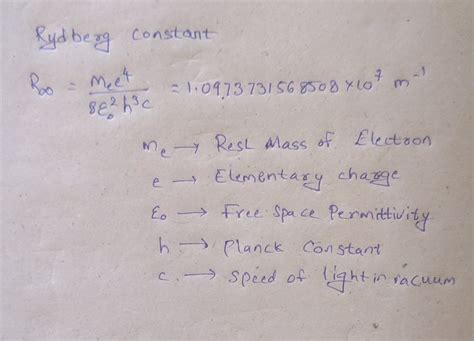 Rydberg Constant
R∞ = mₑe⁴ / 8ε₀²h³c = 1.0973731568508 × 10⁷ m⁻¹
mₑ → Rest Mass of Electron
e → Elementary charge
ε₀ → Free Space Permittivity
h → Planck Constant
c → Speed of light in vacuum